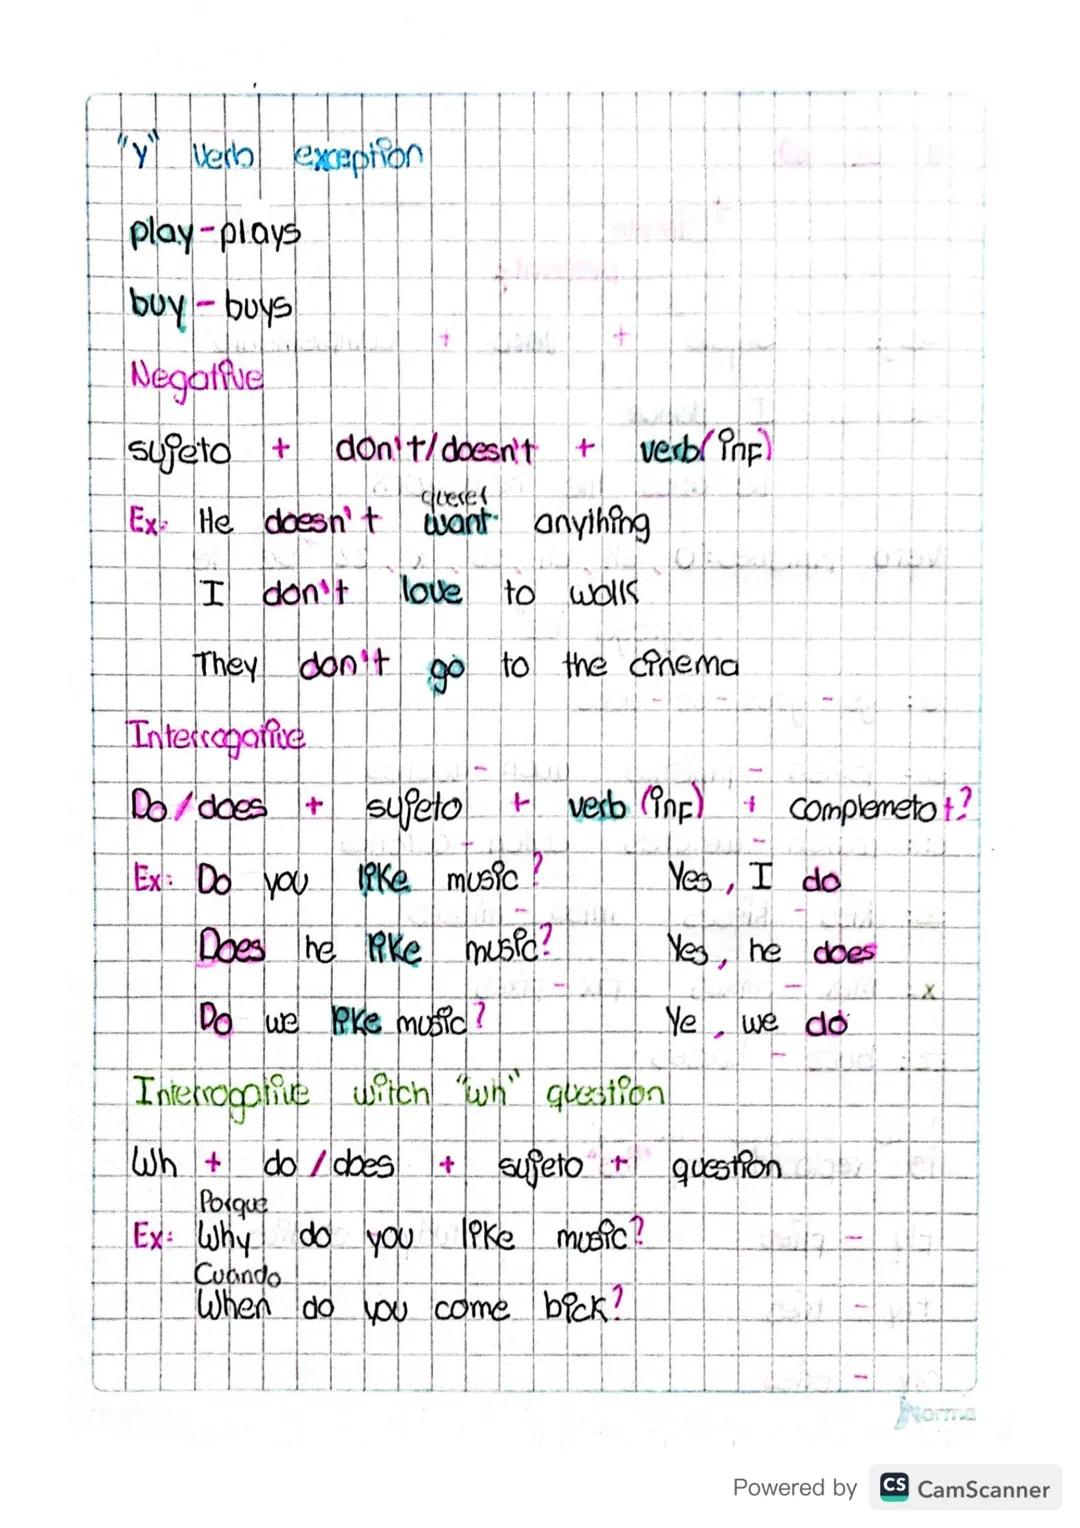 "y" verb exception
play - plays
buy - buys
Negative
sujeto + don't/doesn't + verb(inf)
querer
Ex: He doesn't want anything
I don't love to walk
They don't go to the cinema
Interrogative
Do/does + sujeto + verb (inf) + complemeto+?
Ex: Do you like music? Yes, I do
Does he like music? Yes, he does
Do we like music? Ye, we do
Interrogative witch "wh" question
Wh + do/does + sujeto + question
Porque
Ex: Why do you like music?
Cuando
When do you come bick?
Norma
Powered by CS CamScanner